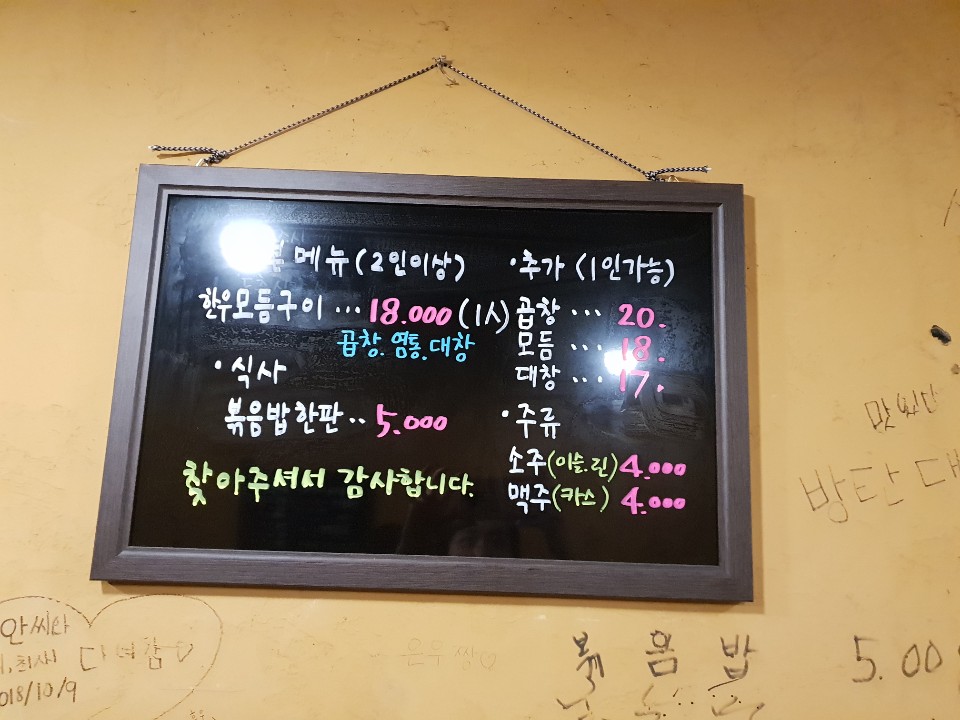 메뉴(2인이상)
한우모듬구이 ... 18.000 (1人)
곱창. 염통. 대창
· 식사
볶음밥한판.. 5.000
찾아주셔서 감사합니다.
· 추가 (1인가능)
곱창 ... 20.
모듬 ... 18.
대창 ... 17.
· 주류
소주(이슬.린) 4.000
맥주(카스) 4.000
맛
방탄
안씨와
다녀감♡
018/10/9
은우 쌀♡
볶음밥 5.00